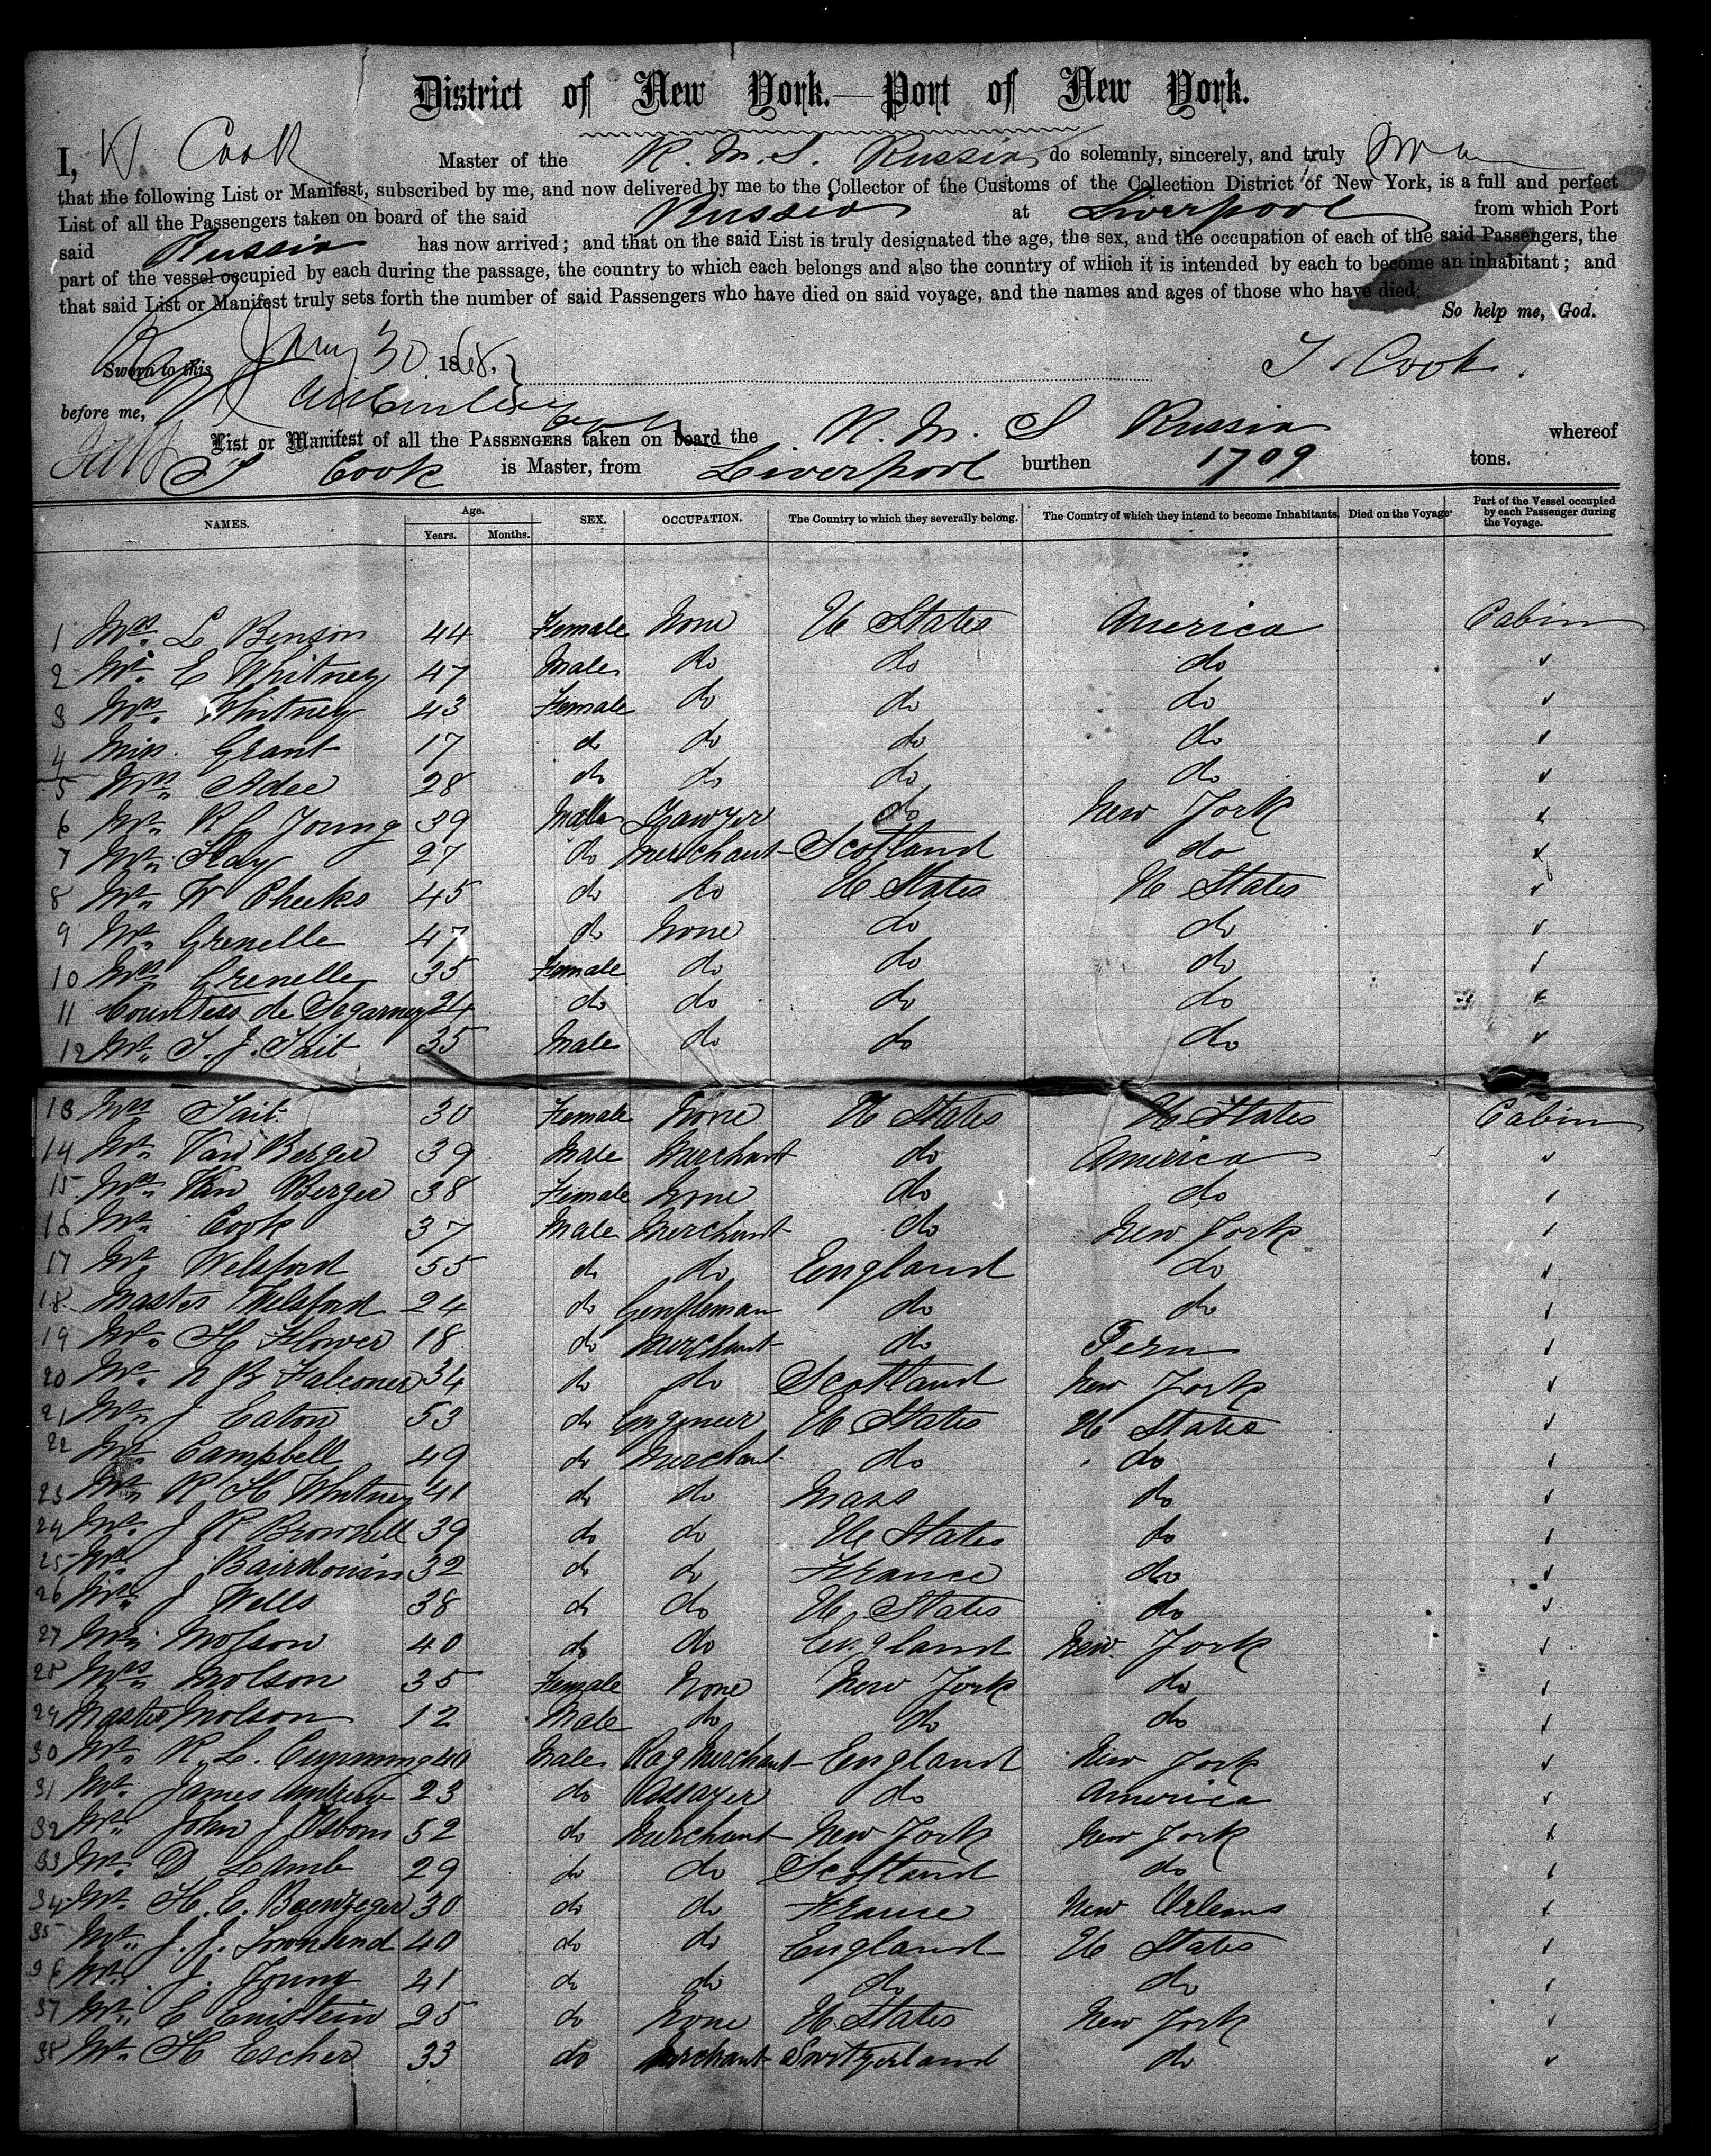 District of New York.—Port of New York.
I, Cook Master of the R. M. S. Russia do solemnly, sincerely, and truly swear
that the following List or Manifest, subscribed by me, and now delivered by me to the Collector of the Customs of the Collection District of New York, is a full and perfect
List of all the Passengers taken on board of the said Russia at Liverpool from which Port
said Russia has now arrived; and that on the said List is truly designated the age, the sex, and the occupation of each of the said Passengers, the
part of the vessel occupied by each during the passage, the country to which each belongs and also the country of which it is intended by each to become an inhabitant; and
that said List or Manifest truly sets forth the number of said Passengers who have died on said voyage, and the names and ages of those who have died.
So help me, God.
Sworn to this Jany 30 1868. T. Cook.
before me,
List or Manifest of all the PASSENGERS taken on board the R. M. S Russia whereof
T Cook is Master, from Liverpool burthen 1709 tons.
NAMES. Age. Years. Months. SEX. OCCUPATION. The Country to which they severally belong. The Country of which they intend to become Inhabitants. Died on the Voyage. Part of the Vessel occupied by each Passenger during the Voyage.
1 Mrs. L Benson 44 Female None U States America Cabin
2 Mr. E Whitney 47 Male do do do ✓
3 Mrs. Whitney 43 Female do do do ✓
4 Miss. Grant 17 do do do do ✓
5 Mrs. Adee 28 do do do do ✓
6 Mr. R C Young 39 Male Lawyer do New York ✓
7 Mr. Hay 27 do Merchant Scotland do ✓
8 Mr. W Cheeks 45 do do U States U States ✓
9 Mr. Grenelle 47 do None do do ✓
10 Mrs. Grenelle 35 Female do do do ✓
11 Countess de Segarney 24 do do do do ✓
12 Mr. T. J. Tait 35 Male do do do ✓
13 Mrs Tait 30 Female None U States U States Cabin
14 Mr. Van Berger 39 Male Merchant do America ✓
15 Mrs. Van Berger 38 Female None do do ✓
16 Mr. Cook 37 Male Merchant do New York ✓
17 Mr. Welsford 55 do do England do ✓
18 Master Welsford 24 do Gentleman do do ✓
19 Mr. H Flower 18 do Merchant do Peru ✓
20 Mr. N B Falconer 34 do do Scotland New York ✓
21 Mr. J Eaton 53 do Engineer U States U States ✓
22 Mr. Campbell 49 do Merchant do do ✓
23 Mr. R H Whitney 41 do do Mass do ✓
24 Mr. J R Brownell 39 do do U States do ✓
25 Mr. J 32 do do France do ✓
26 Mr. J Wells 38 do do U States do ✓
27 Mr. Molson 40 do do England New York ✓
28 Mrs. Molson 35 Female None New York do ✓
29 Master Molson 12 Male do do do ✓
30 Mr. R. L. Cumming 40 Male Rag Merchant England New York ✓
31 Mr. James 23 do Assayer do America ✓
32 Mr. John J Osborn 52 do Merchant New York New York ✓
33 Mr. D Lamb 29 do do Scotland do ✓
34 Mr. H. E. Baenzeger 30 do do France New Orleans ✓
35 Mr. J. J. Townsend 40 do do England U States ✓
36 Mr. J. Young 41 do do do do ✓
37 Mr. E Einstein 25 do None U States New York ✓
38 Mr. H Escher 33 do Merchant Switzerland do ✓